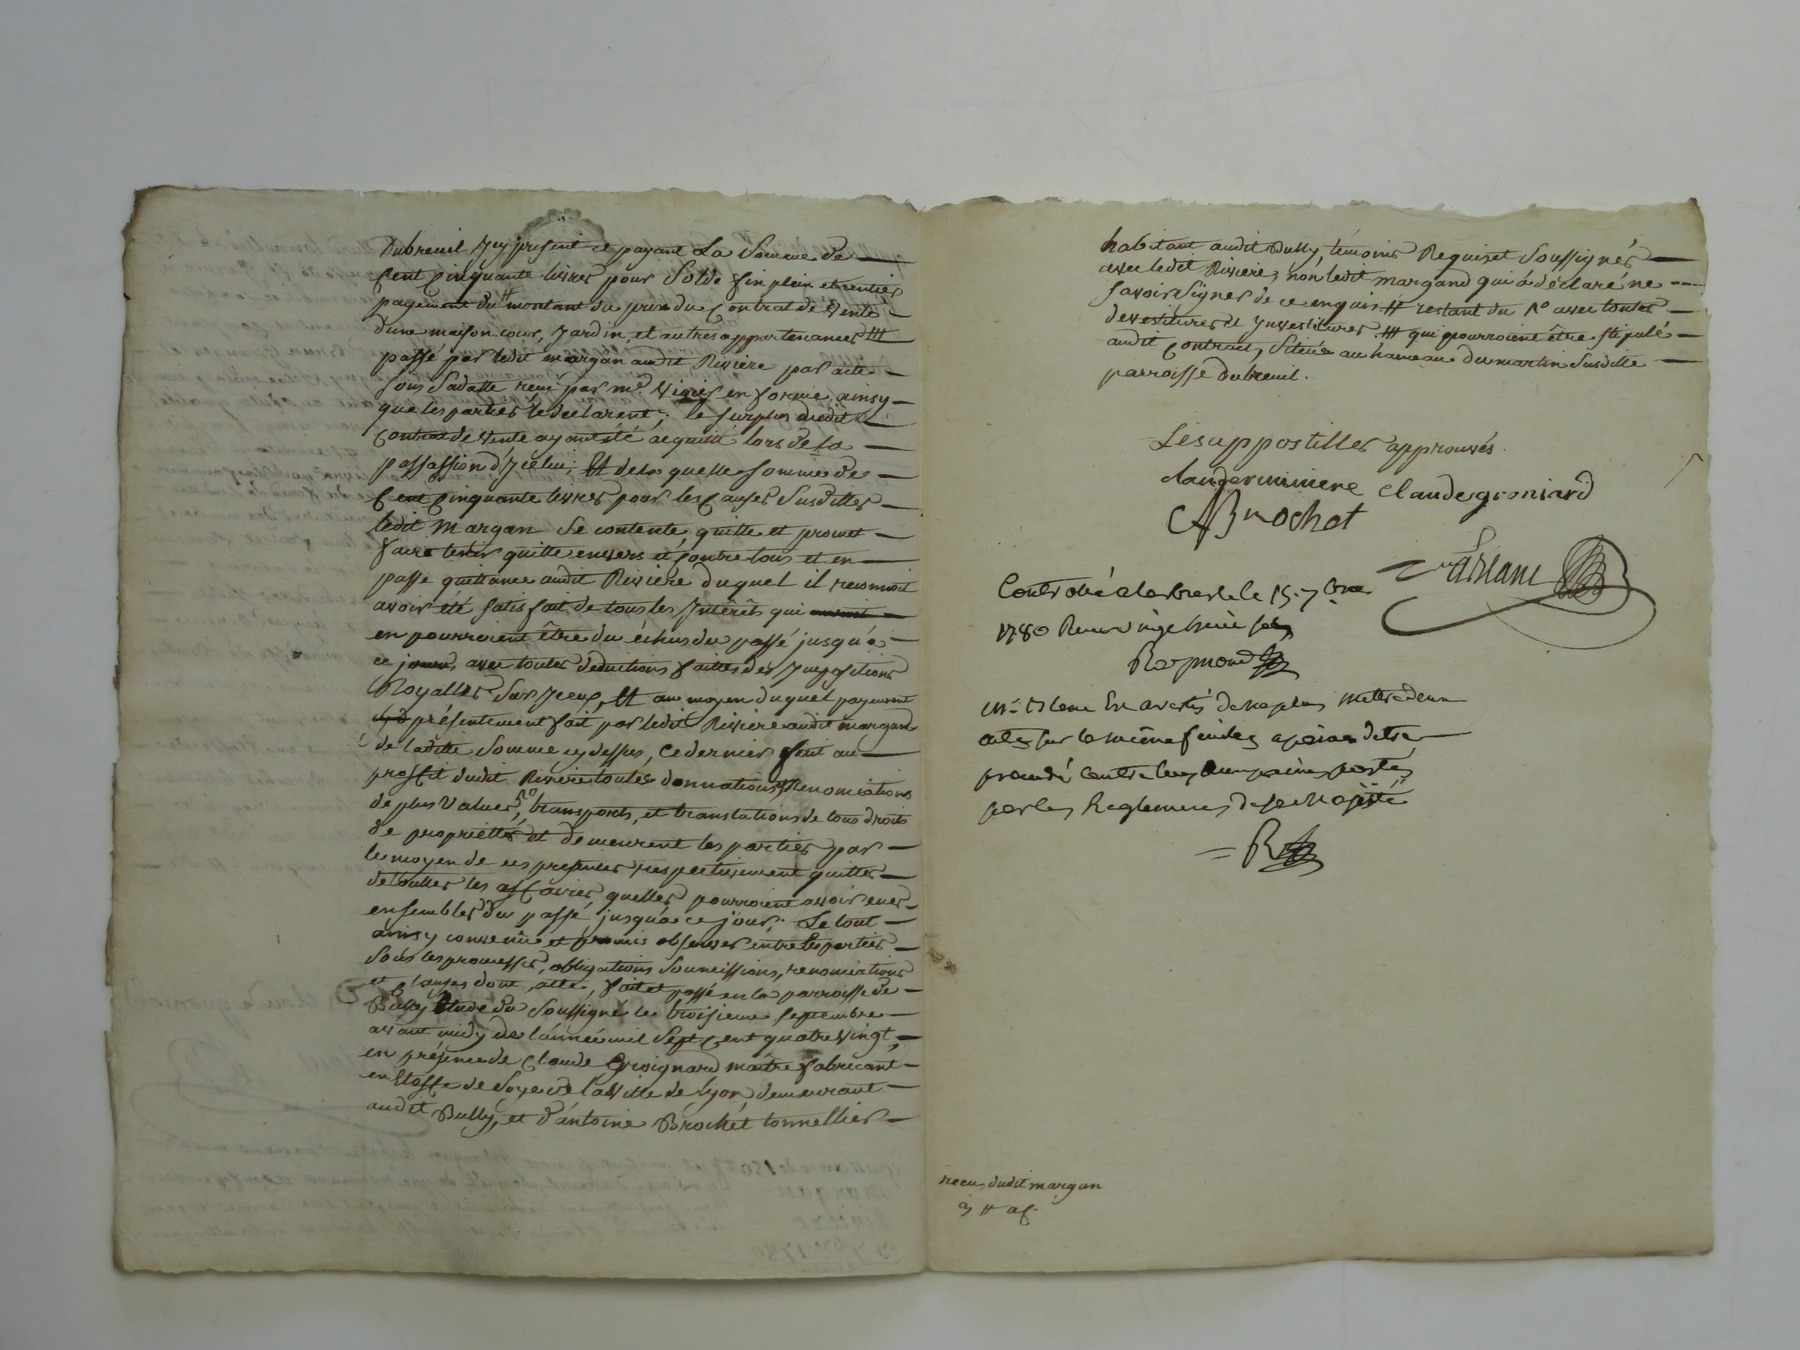 Dubreuil Jcy present et payant La Somme de
Cent Cinquante livres pour Solde fin plein et entier
payement du # montant du prix du Contrat de vente
d'une maison cour, Jardin, et autres appartenances ###
passé par ledit margan audit Riviere par acte
sous sadatte reçu par me en forme ainsy
que les parties le declarent; le surplus dudit
Contrat de vente ayant été acquitté lors de la
passassion d'Jcelui; Et de la quelle somme de
Cent Cinquante livres pour les Causes Susdittes
ledit margan Se contente, quitte et promet
faire tenir quitte envers et Contre tous et en
passe quittance audit Riviere duquel il reconnoit
avoir été satisfait de tous les Jntérêts qui
en pourroient être du échus du passé jusqu'à
ce jour, avec toutes deductions faites des Jmpositions
Royalles Sur Jceux, Et au moyen duquel payement
présentement fait par ledit Riviere audit margand
de laditte Somme cy dessus, ce dernier fait au
proffit dudit Riviere toutes donnations, Renonciations
de plus values, no transports, et translations de tous droits
de propriettés et demeurent les parties par
le moyen de ces presentes respectivement quittes
de touttes les affaires, quelles pourroient avoir eues
ensembles du passé jusqu'à ce jour; Le tout
ainsy convenu et promis observer entre les parties
Sous les promesses, obligations Soumissions, renonciations
et Clauses dont acte, fait et passé en la parroisse de
Bully Etude du Soussigné le troisieme Septembre
avant midy de l'année mil Sept Cent quatre vingt,
en présence de Claude Groignard maitre fabricant
en Etoffe de Soye de la Ville de Lyon, demeurant
audit Bully, et d'antoine Brochét tonnellier
habitant audit Bully, témoins Requis et Soussignés
avec ledit Riviere, non ledit margand qui á déclaré ne
savoir signer de ce enquis # restant du no avec toutes
devestitures et Jnvestitures ### qui pourroient être stipulé
audit Contrat, Située au hameau du martin Susditte
parroisse dubreuil.
Les appostilles approuvés.
claude groniard
A Brochet
Controlé a le 15. 7bre
1780 Recu
Raymond
de ne plus mettre deux
actes sur la même feuille a peine detre
contre luy
par les Reglemens de sa Majesté
R
recu dudit margan
3 #